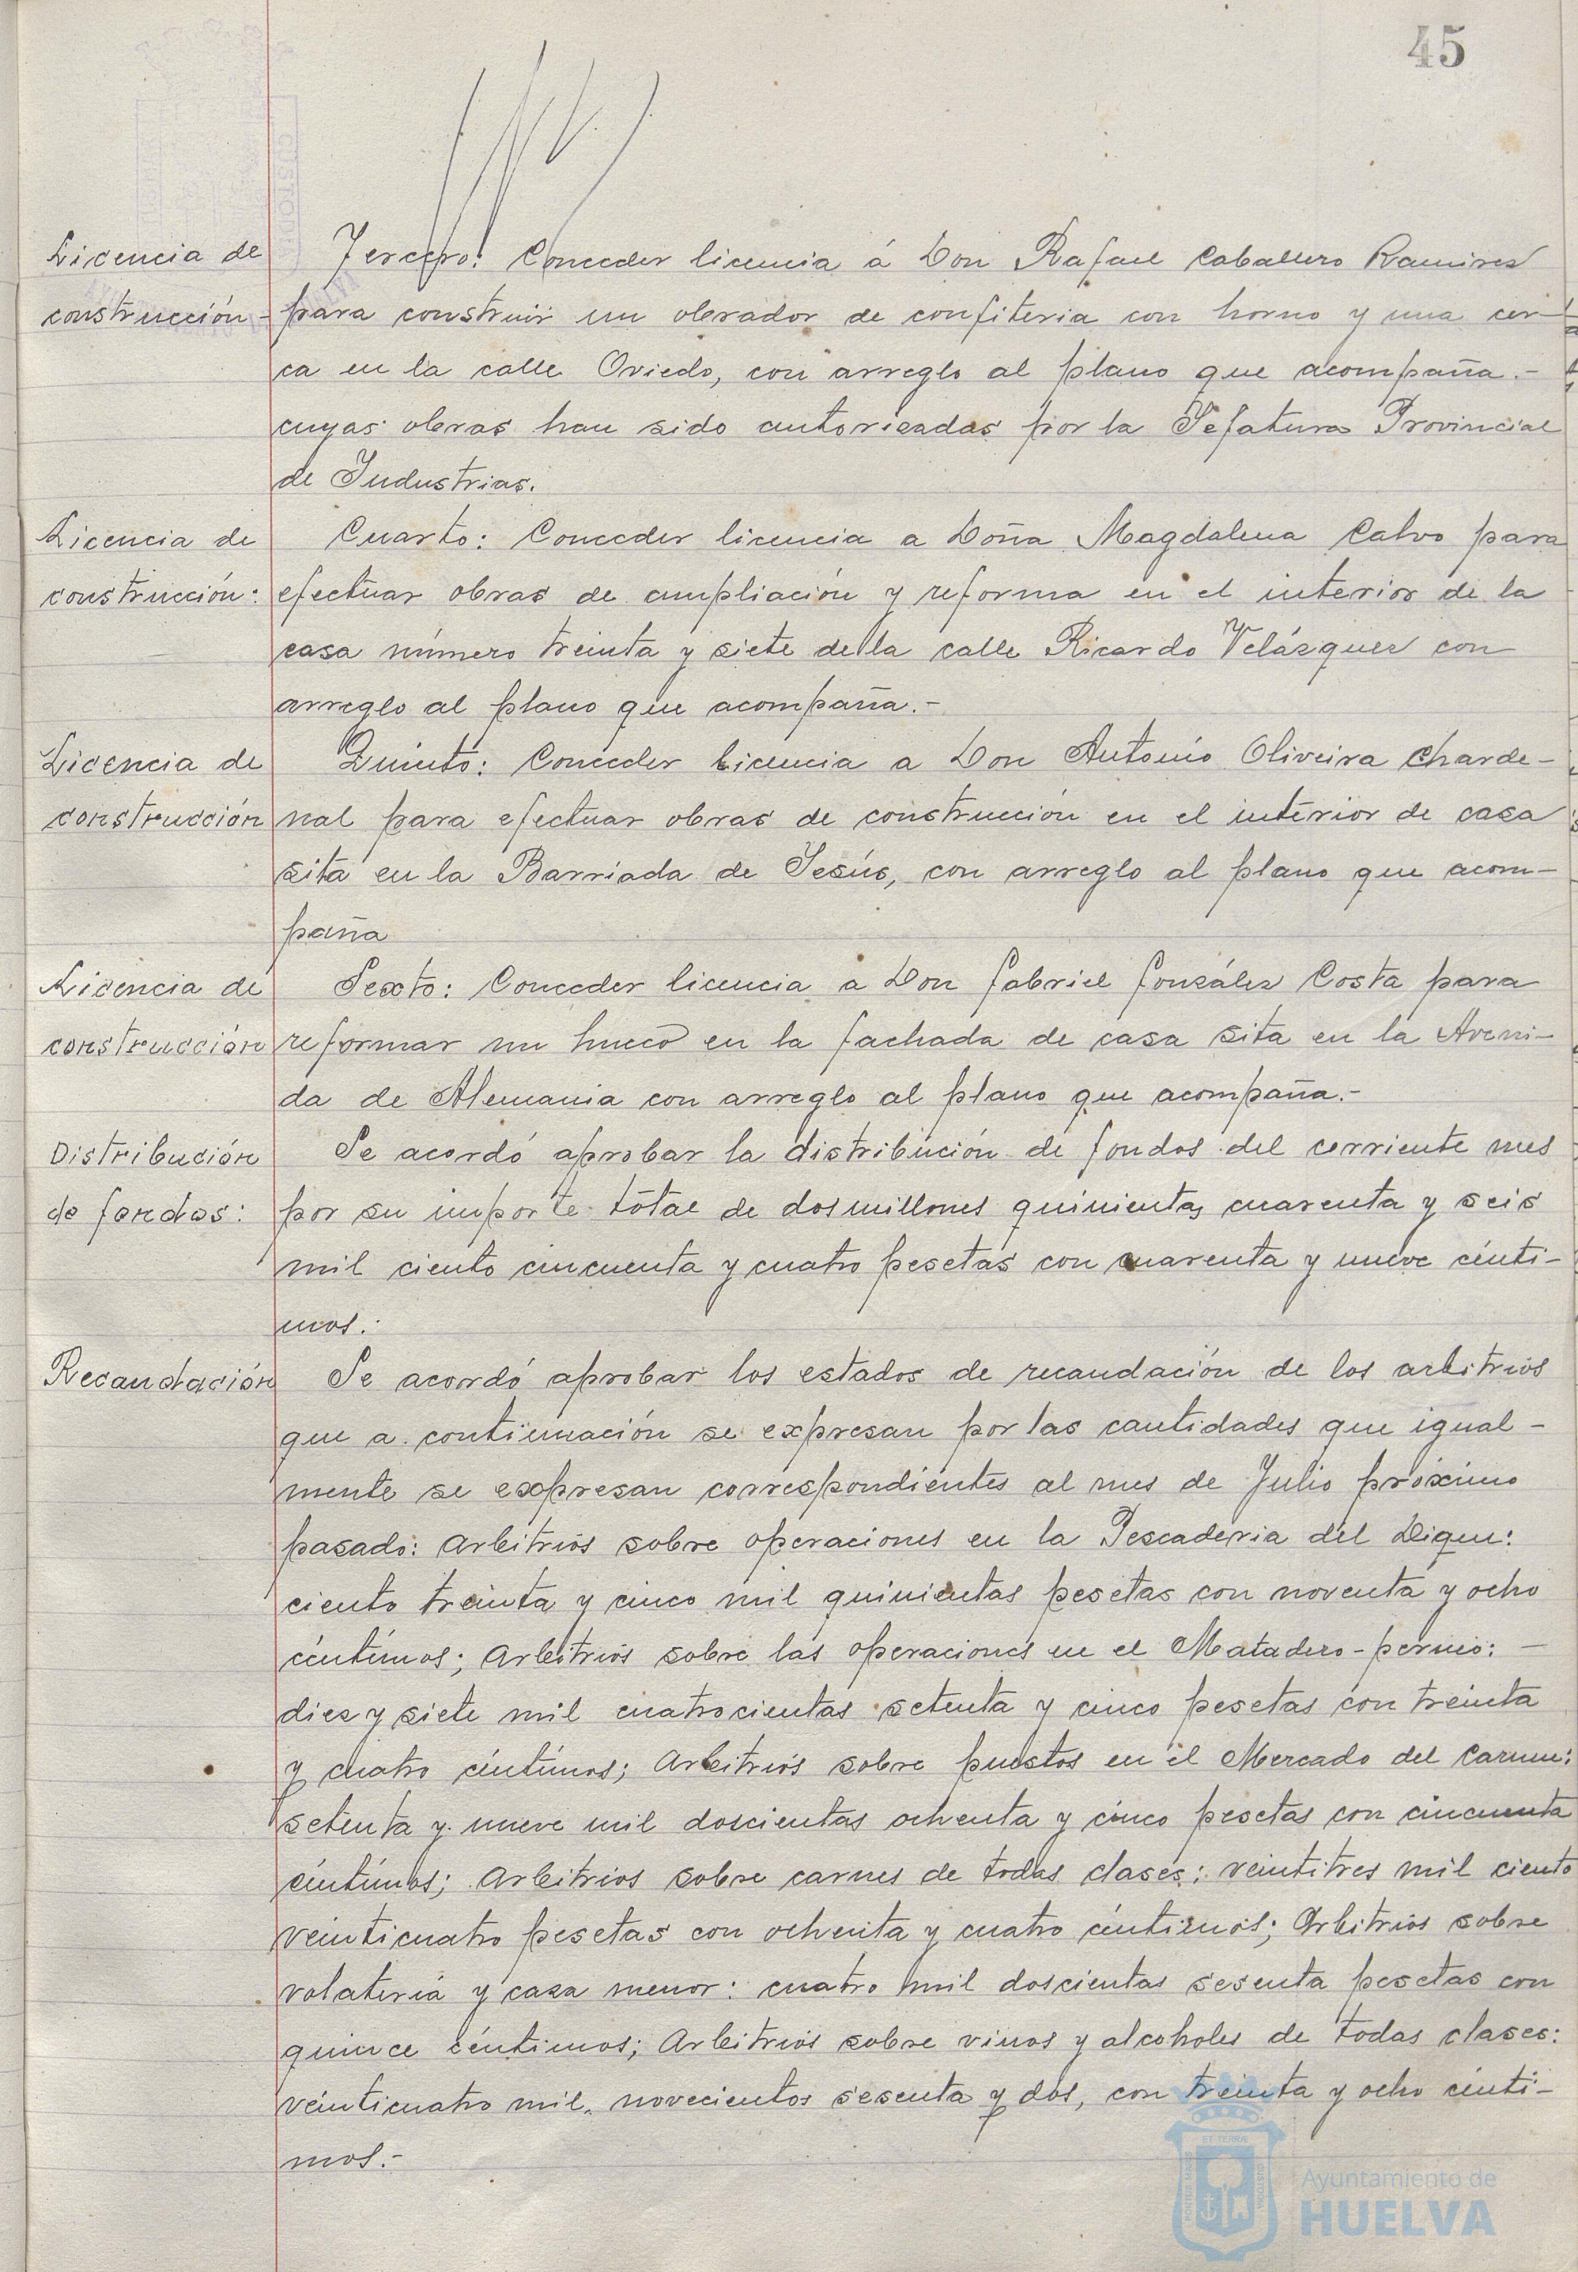 45
Licencia de
construcción-
Tercero: Conceder licencia á Don Rafael Caballero Ramirez
para construir un obrador de confiteria con horno y una cer-
ca en la calle Oviedo, con arreglo al plano que acompaña.-
cuyas obras han sido autorizadas por la Jefatura Provincial
de Industrias.
Licencia de
construcción:
Cuarto: Conceder licencia a Doña Magdalena Calvo para
efectuar obras de ampliación y reforma en el interior de la
casa número treinta y siete de la calle Ricardo Velázquez con
arreglo al plano que acompaña.-
Licencia de
construcción
Quinto: Conceder licencia a Don Antonio Oliveira Charde-
nal para efectuar obras de construcción en el interior de casa
sita en la Barriada de Jesús, con arreglo al plano que acom-
paña
Licencia de
construcción
Sexto: Conceder licencia a Don Gabriel González Costa para
reformar un hueco en la fachada de casa sita en la Aveni-
da de Alemania con arreglo al plano que acompaña.-
Distribución
de fondos:
Se acordó aprobar la distribución de fondos del corriente mes
por su importe total de dos millones quinientas cuarenta y seis
mil ciento cincuenta y cuatro pesetas con cuarenta y nueve cénti-
mos.-
Recaudación
Se acordó aprobar los estados de recaudación de los arbitrios
que a continuación se expresan por las cantidades que igual-
mente se expresan correspondientes al mes de Julio próximo
pasado: Arbitrios sobre operaciones en la Pescaderia del Dique:
ciento treinta y cinco mil quinientas pesetas con noventa y ocho
céntimos; Arbitrios sobre las operaciones en el Matadero-pernio: -
diez y siete mil cuatrocientas setenta y cinco pesetas con treinta
y cuatro céntimos; Arbitrios sobre puestos en el Mercado del Carmen:
setenta y nueve mil doscientas ochenta y cinco pesetas con cincuenta
céntimos; Arbitrios sobre carnes de todas clases: veintitres mil ciento
veinticuatro pesetas con ochenta y cuatro céntimos; Arbitrios sobre
volateria y caza menor: cuatro mil doscientas sesenta pesetas con
quince céntimos; Arbitrios sobre vinos y alcoholes de todas clases:
veinticuatro mil, novecientos sesenta y dos, con treinta y ocho cénti-
mos.-
Ayuntamiento de
HUELVA